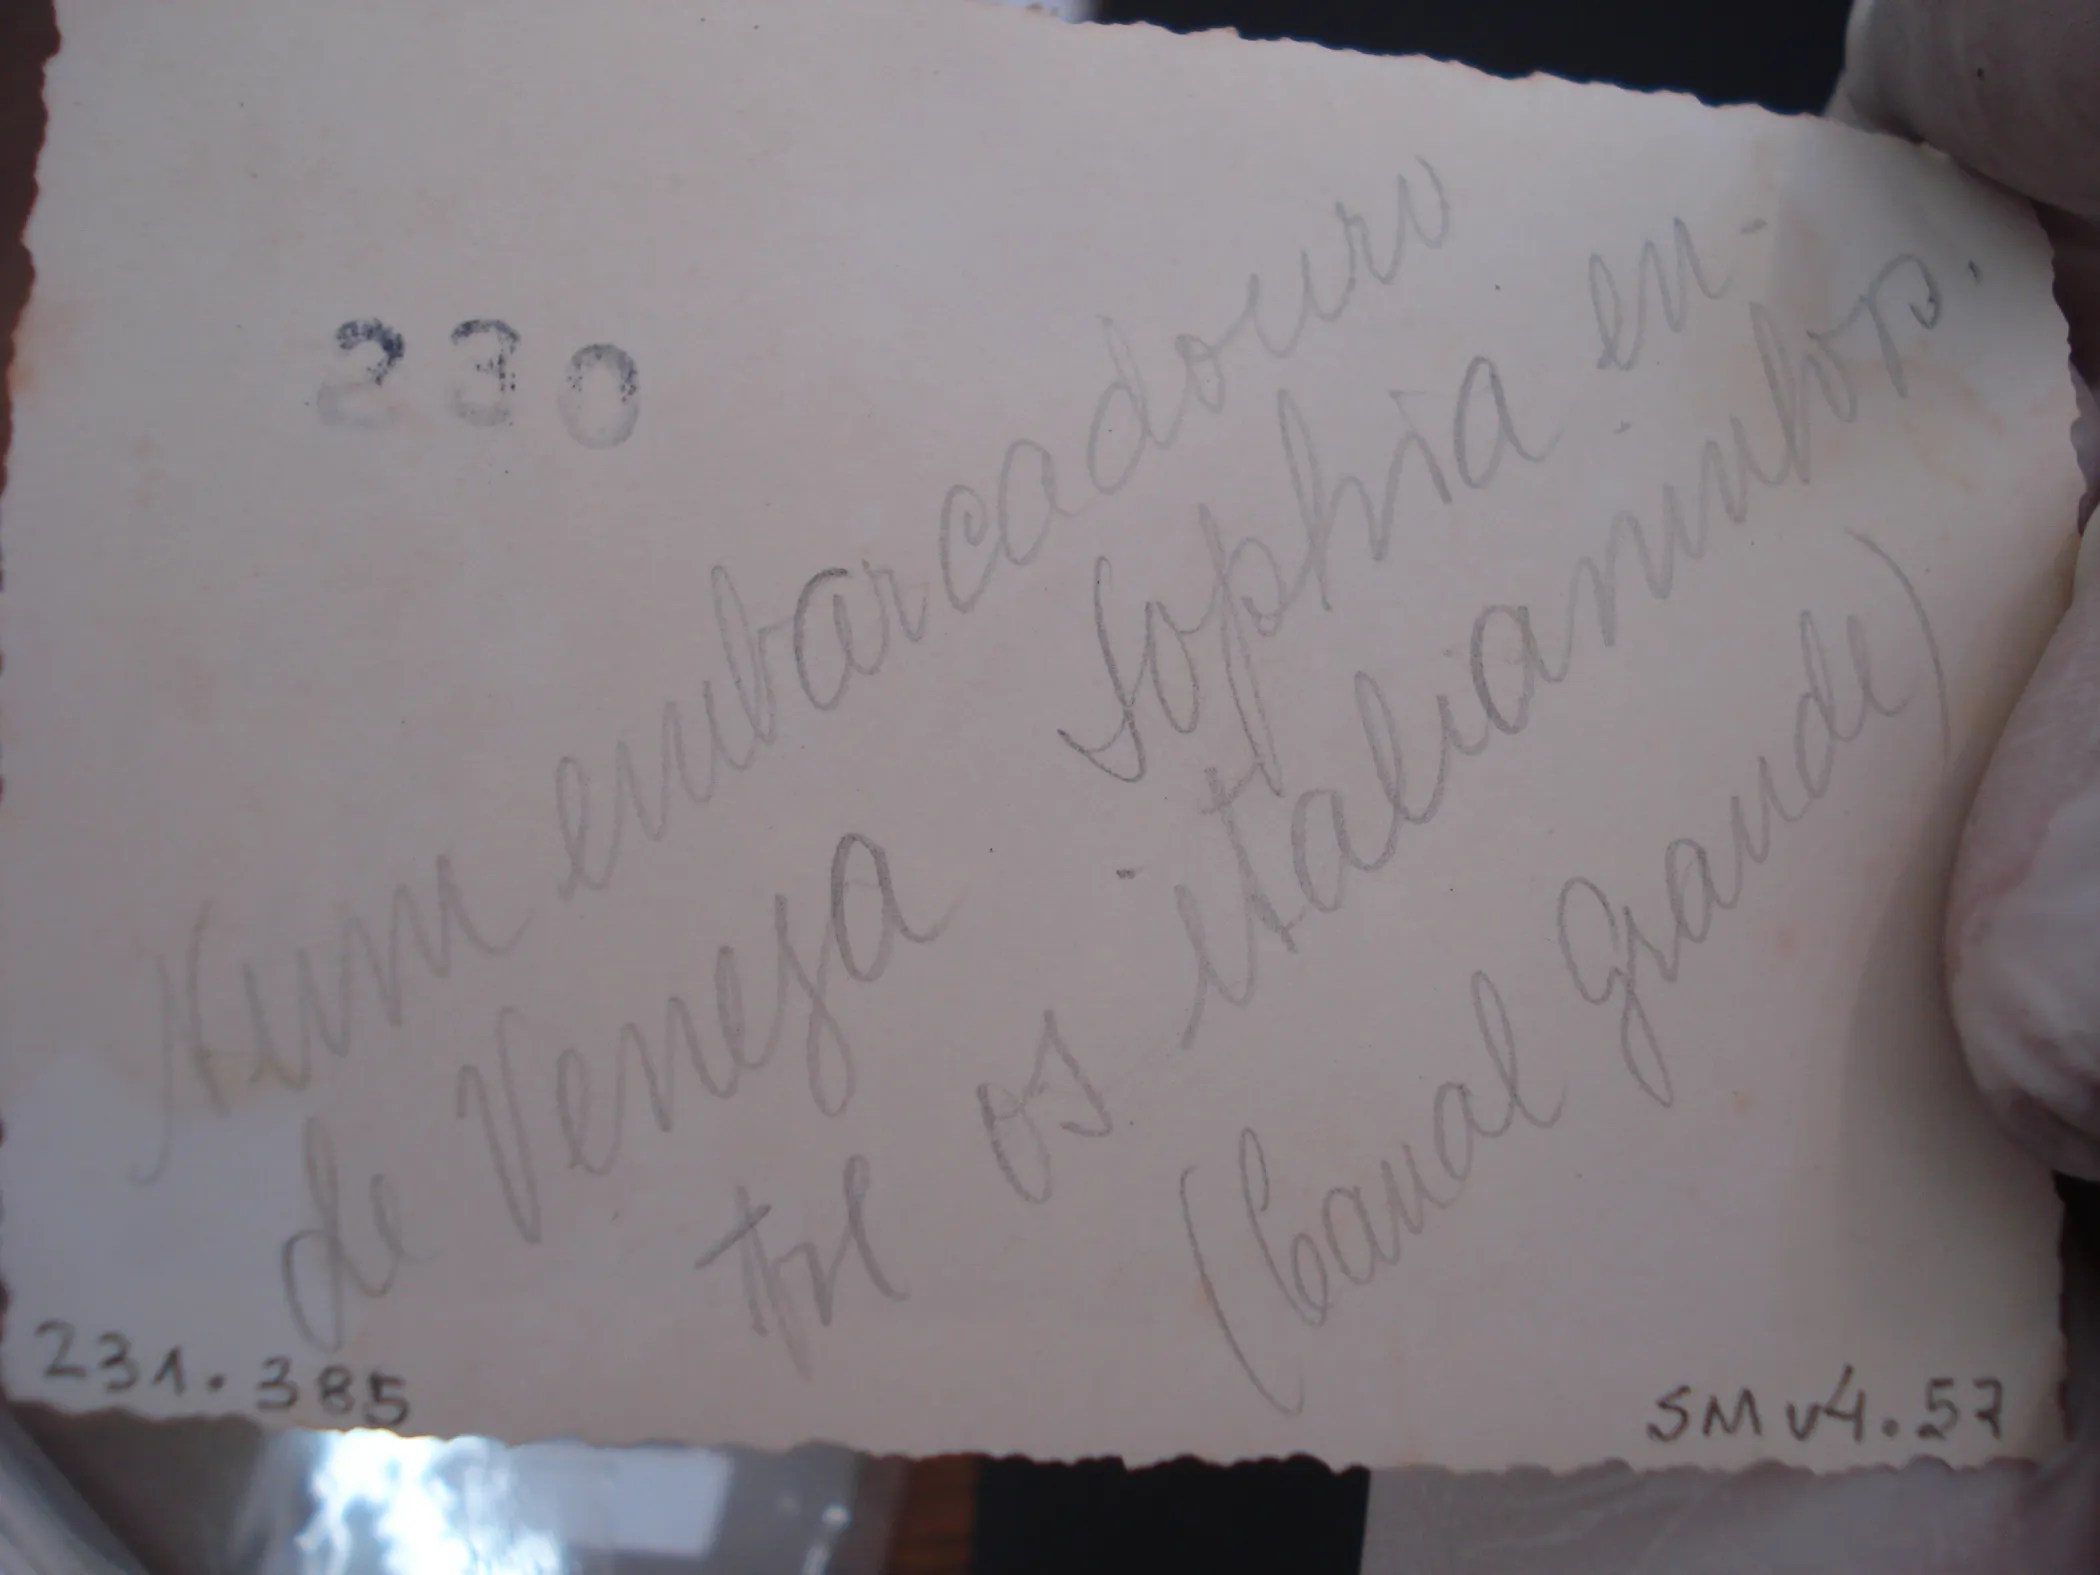 230
Num embarcadouro
de Veneza. Sophia en-
tre os italianinhos.
(Canal Grande)
231.385
SMv4.57